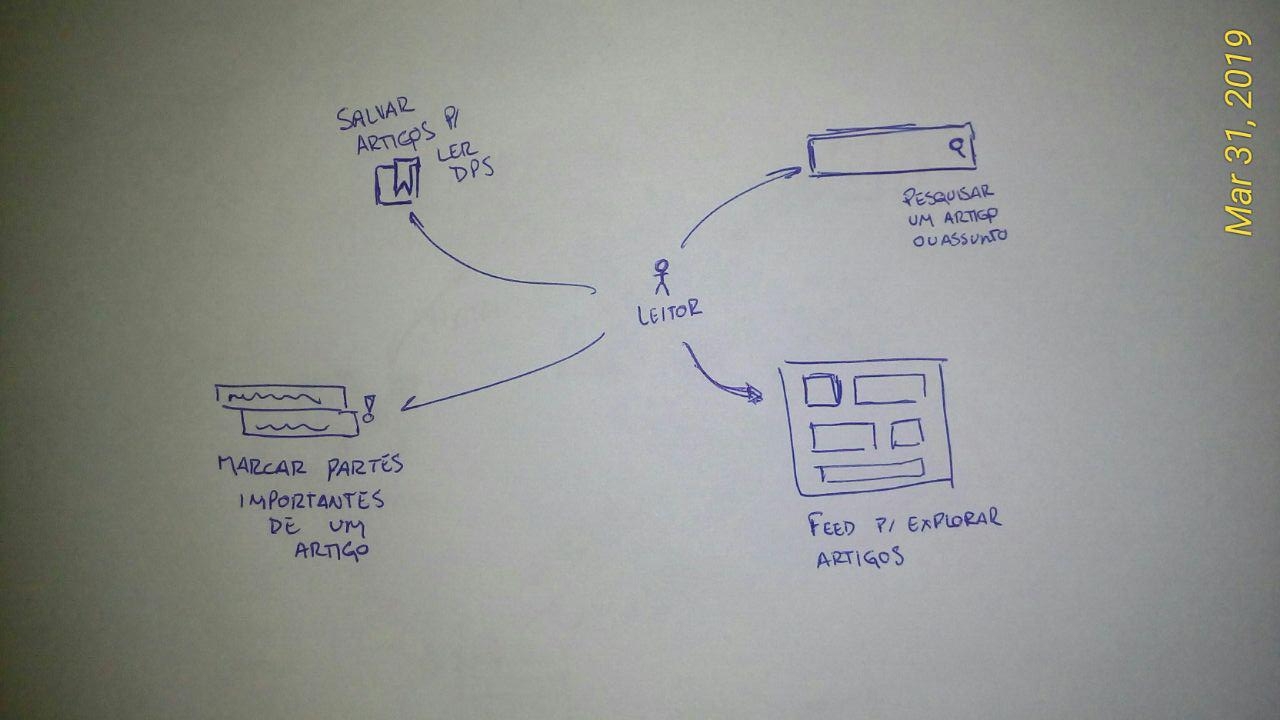 SALVAR
ARTIGOS P/
LER
DPS
PESQUISAR
UM ARTIGO
OU ASSUNTO
LEITOR
MARCAR PARTES
IMPORTANTES
DE UM
ARTIGO
FEED P/ EXPLORAR
ARTIGOS
Mar 31, 2019